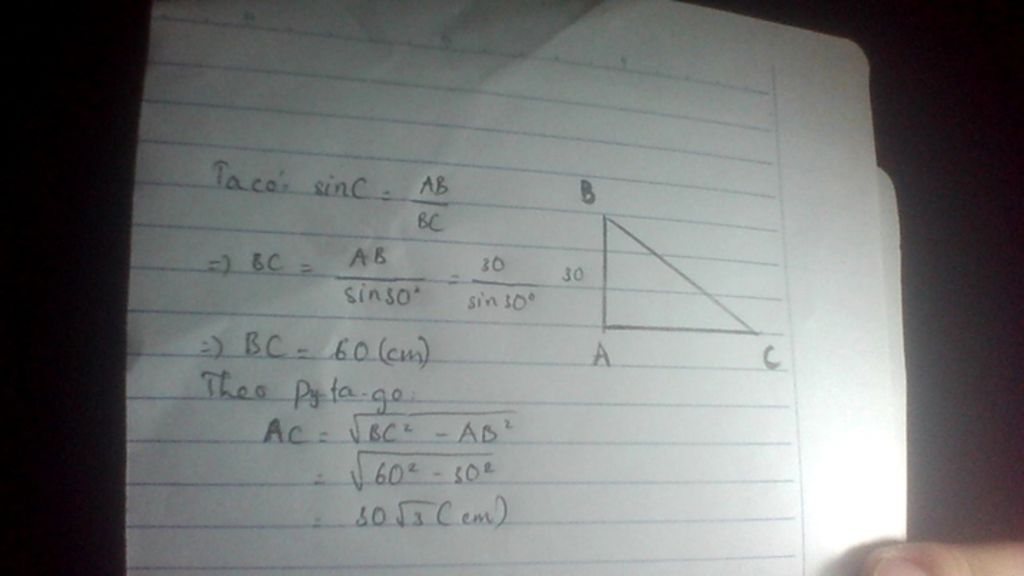 Ta có: sin C = AB / BC
=) BC = AB / sin 30° = 30 / sin 30°
=) BC = 60 (cm)
Theo Py ta-go:
AC = √BC² - AB²
= √60² - 30²
= 30√3 (cm)
B
30
A C